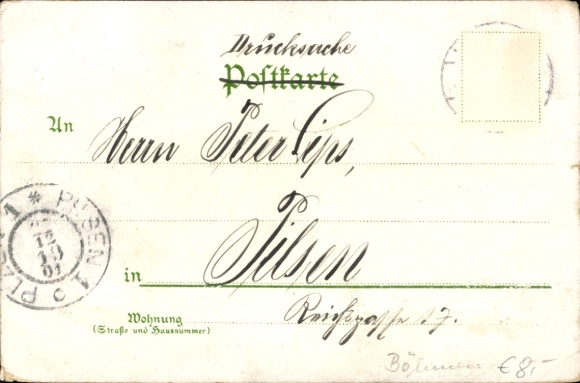 Drucksache
Postkarte
An
Herrn Peter Cips,
PILSEN 1 * PLZEŇ 1
12
10
01
in
Pilsen
Wohnung
(Straße und Hausnummer)
Reichsgasse 17.
Böhmen €8,-